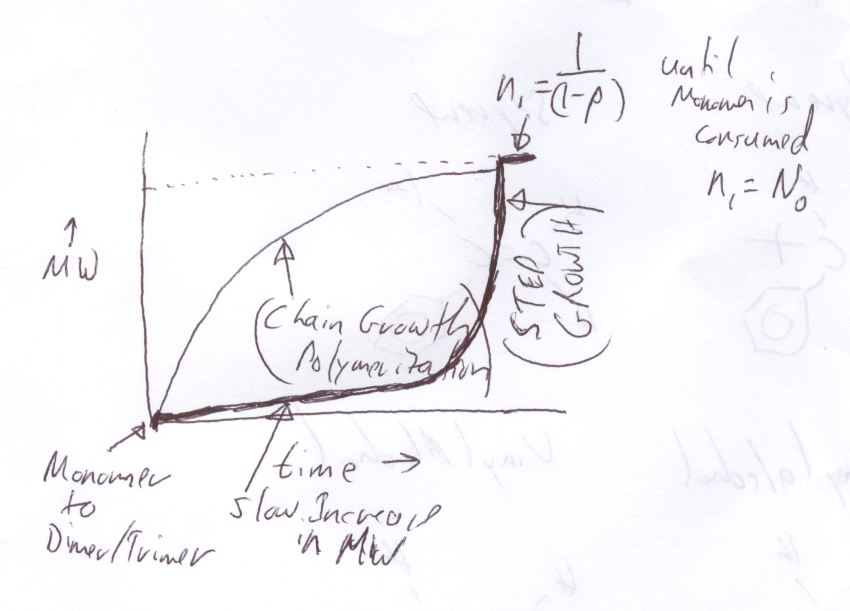 n₁ = 1/(1-p)
until
Monomer is
consumed
n₁ = N₀
↑
MW
(Chain Growth
Polymerization)
(STEP
GROWTH)
Monomer
to
Dimer/Trimer
time →
Slow Increase
in MW